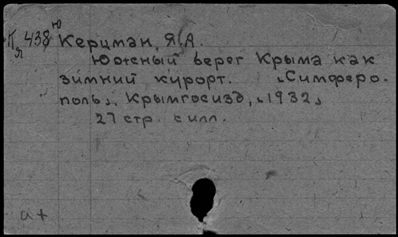 П 438 ю
я
Керцман, Я.А.
Южный берег Крыма как
зимний курорт. ⌞Симферо-
поль⌟, Крымгосизд, ⌞1932⌟
27 стр. с илл.
а+